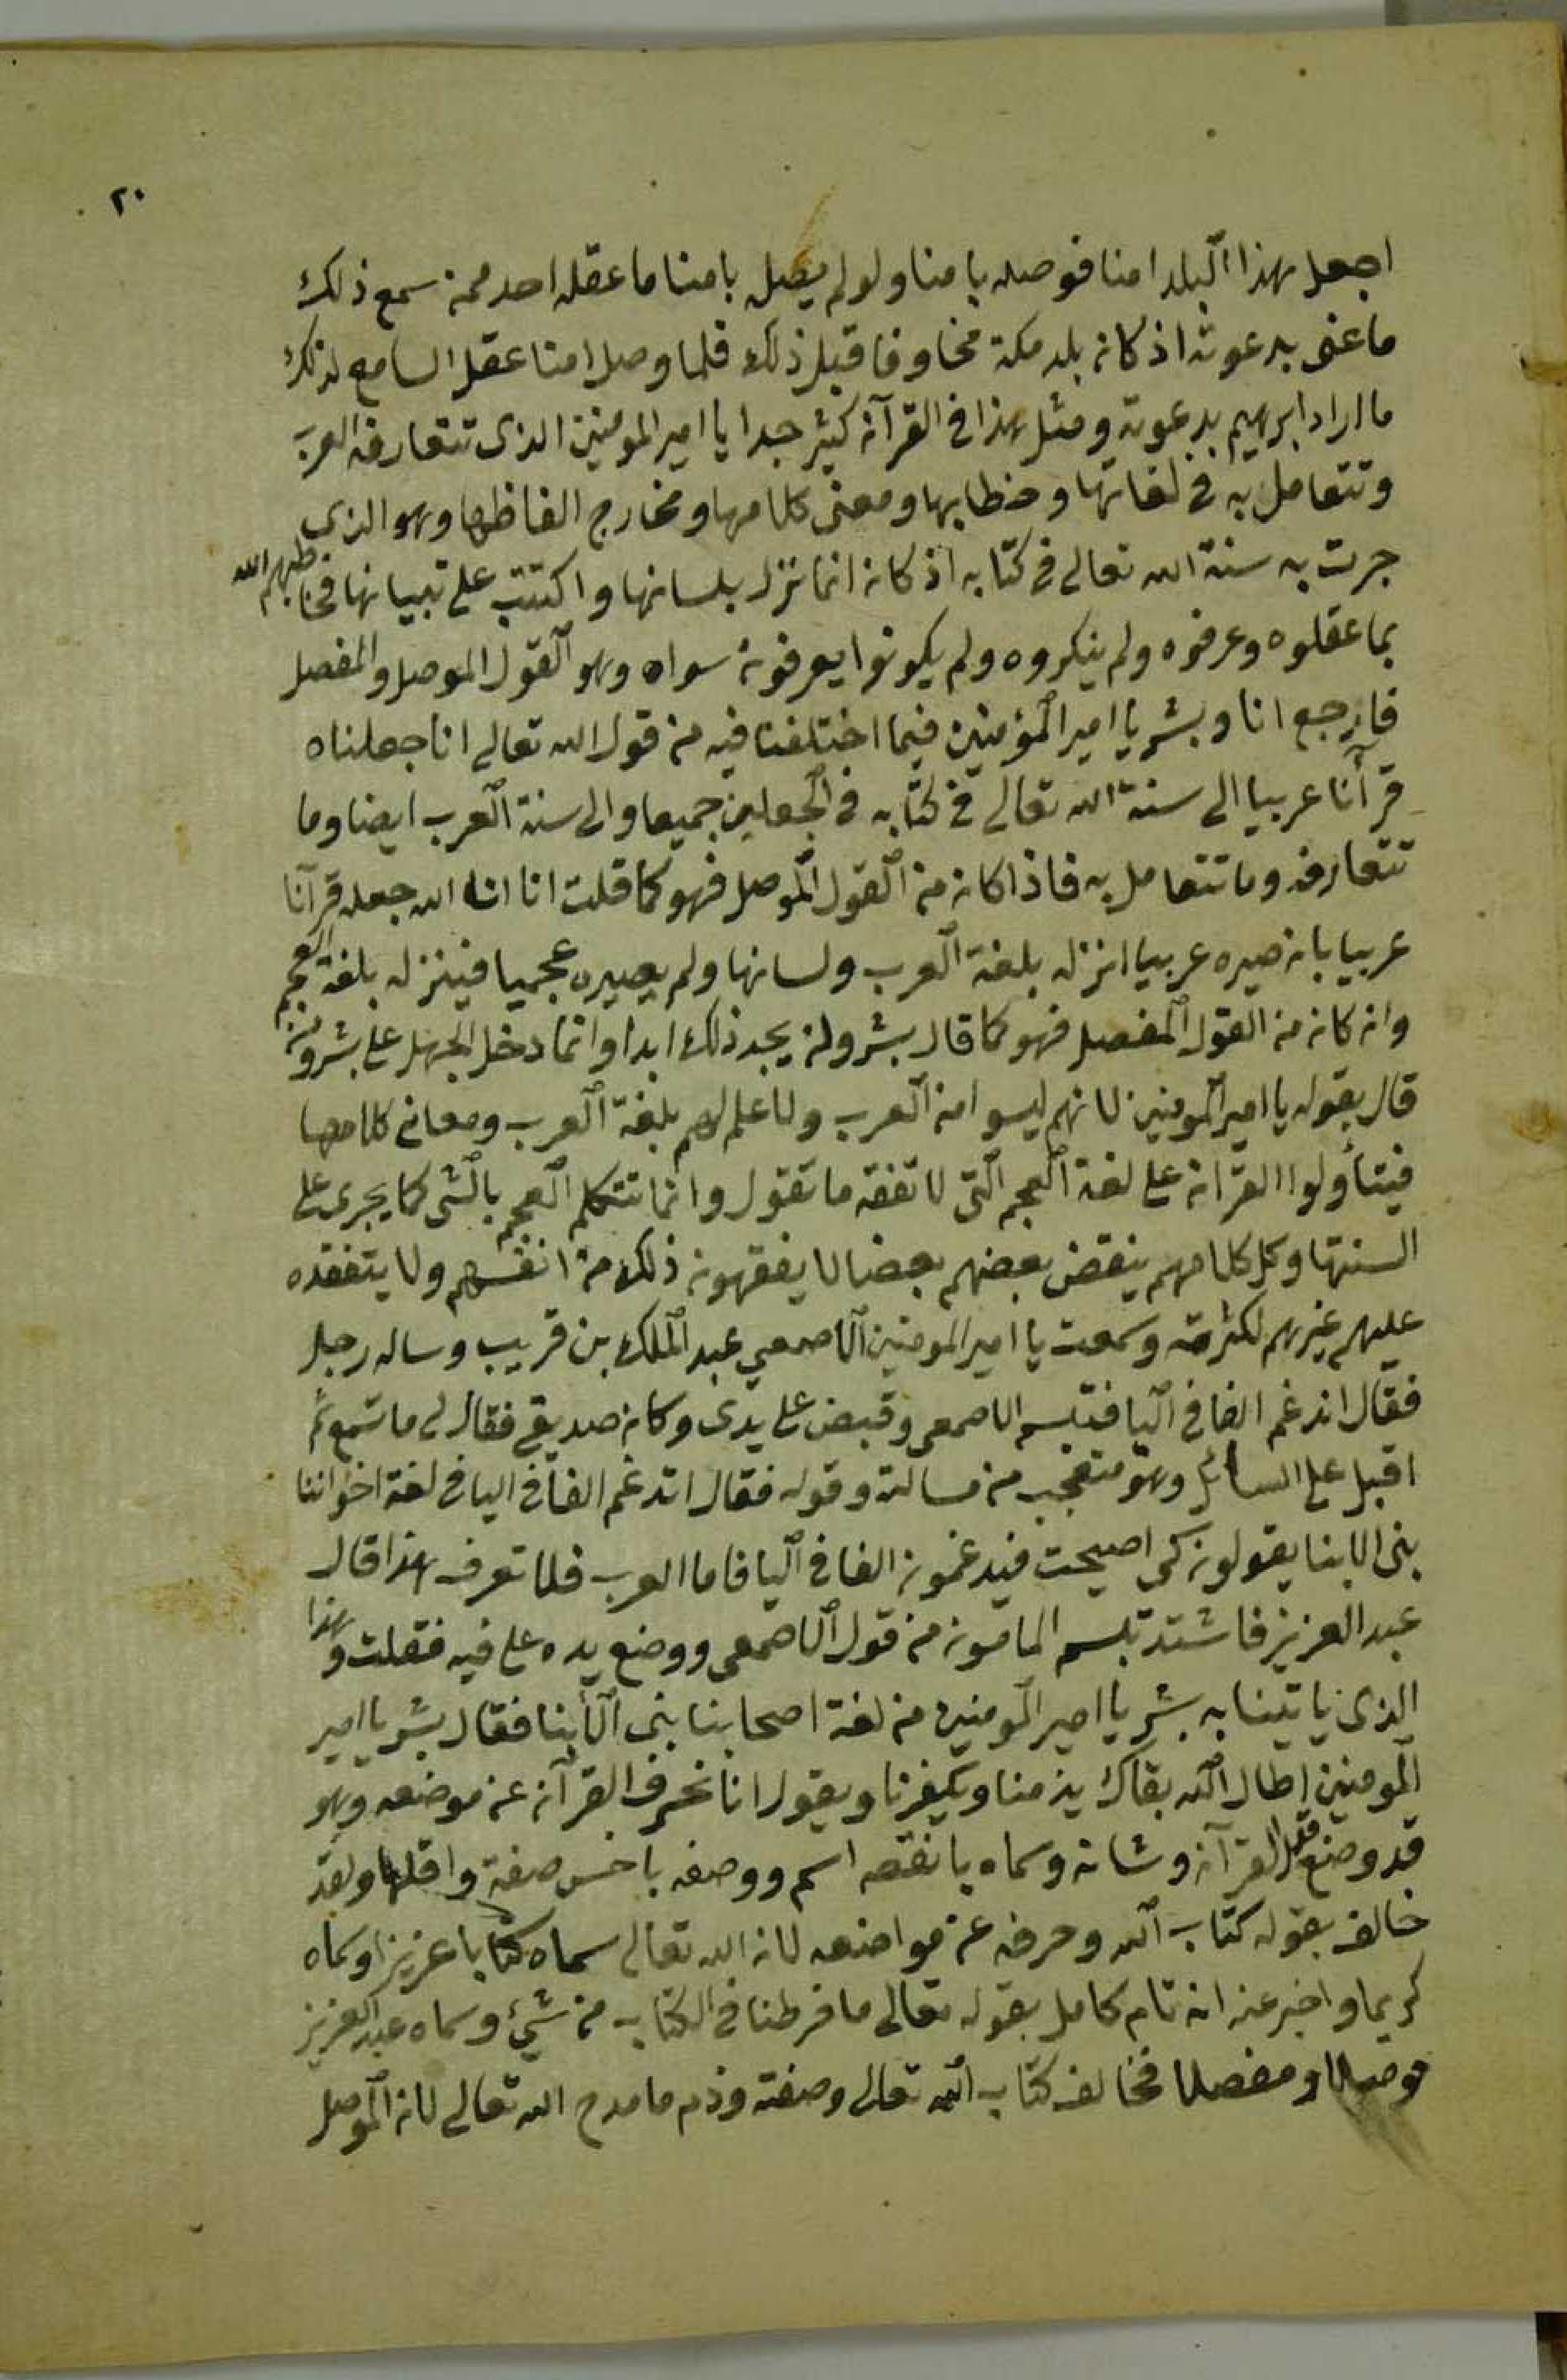 ٢٠
اجعل هذا البلد امنا فوصله بامنا ولو لم يصل بامنا ما عقله احد ممن سمع ذلك
ما عنى بدعوته اذ كان بلد مكة مخاوفا قبل ذلك فلما وصل امنا عقل السامع لذلك
ما اراد ابرهيم بدعوته ومثل هذا في القرآن كثير جدا يا امير المومنين الذى تتعارفه العرب
وتتعامل به في لغاتها وخطابها ومعنى كلامها ومخارج الفاظها وهو الذى
جرت به سنة الله تعالى في كتابه اذ كان انما نزل بلسانها واكتتب على تبيانها فخاطبهم الله
بما عقلوه وعرفوه ولم ينكروه ولم يكونوا يعرفون سواه وهو القول الموصل والمفصل
فارجع انا وبشر يا امير المؤمنين فيما اختلفنا فيه من قول الله تعالى انا جعلناه
قرآنا عربيا الى سنة الله تعالى في كتابه في الجعلين جميعا والى سنة العرب ايضا وما
تتعارفه وما تتعامل به فاذا كان من القول الموصل فهو كما قلت انا ان الله جعله قرآنا
عربيا بان صيره عربيا انزله بلغة العرب ولسانها ولم يصيره عجميا فينزله بلغة العجم
وان كان من القول المفصل فهو كما قال بشر ولن يجد ذلك ابدا وانما دخل الجهل على بشر ومن
قال بقوله يا امير المومنين لانهم ليسوا من العرب ولا علم لهم بلغة العرب ومعاني كلامها
فيتأولوا القران على لغة العجم التى لا تفقه ما تقول وانما تتكلم العجم بالشى كما يجرى على
السنتها وكل كلامهم ينقض بعضهم بعضا لا يفقهون ذلك من انفسهم ولا يتفقده
عليهم غيرهم لكثرته وسمعت يا امير المومنين الاصمعي عبد الملك بن قريب وساله رجل
فقال اتدغم الفا في اليا فتبسم الاصمعى وقبض على يدى وكان صديقى فقال لى ما تسمع ثم
اقبل على السائل وهو متعجب من مسالته وقوله فقال اتدغم الفا في اليا فى لغة اخواننا
بنى الابنا يقولون كي اصبحت فيدغمون الفا في اليا فاما العرب فلا تعرف هذا قال
عبد العزيز فاشتد تبسم المامون من قول الاصمعى ووضع يده على فيه فقلت وهذا
الذى ياتينا به بشر يا امير المومنين من لغة اصحابنا بنى الأبنا فقال بشر يا امير
المومنين اطال الله بقاك يذمنا ويكفرنا ويقول انا نحرف القرآن عن موضعه وهو
قد وضع قدر القرآن وشانه وسماه بانقص اسم ووصفه باخس صفة واقلها ولقد
خالف بقوله كتاب الله وحرفه عن مواضعه لان الله تعالى سماه كتابا عزيزا وسماه
كريما واخبر عنه انه تام كامل بقوله تعالى ما فرطنا في الكتاب من شيء وسماه عبد العزيز
موصلا ومفصلا فخالف كتاب الله تعالى وصفته وذم ما مدح الله تعالى لان الموصل